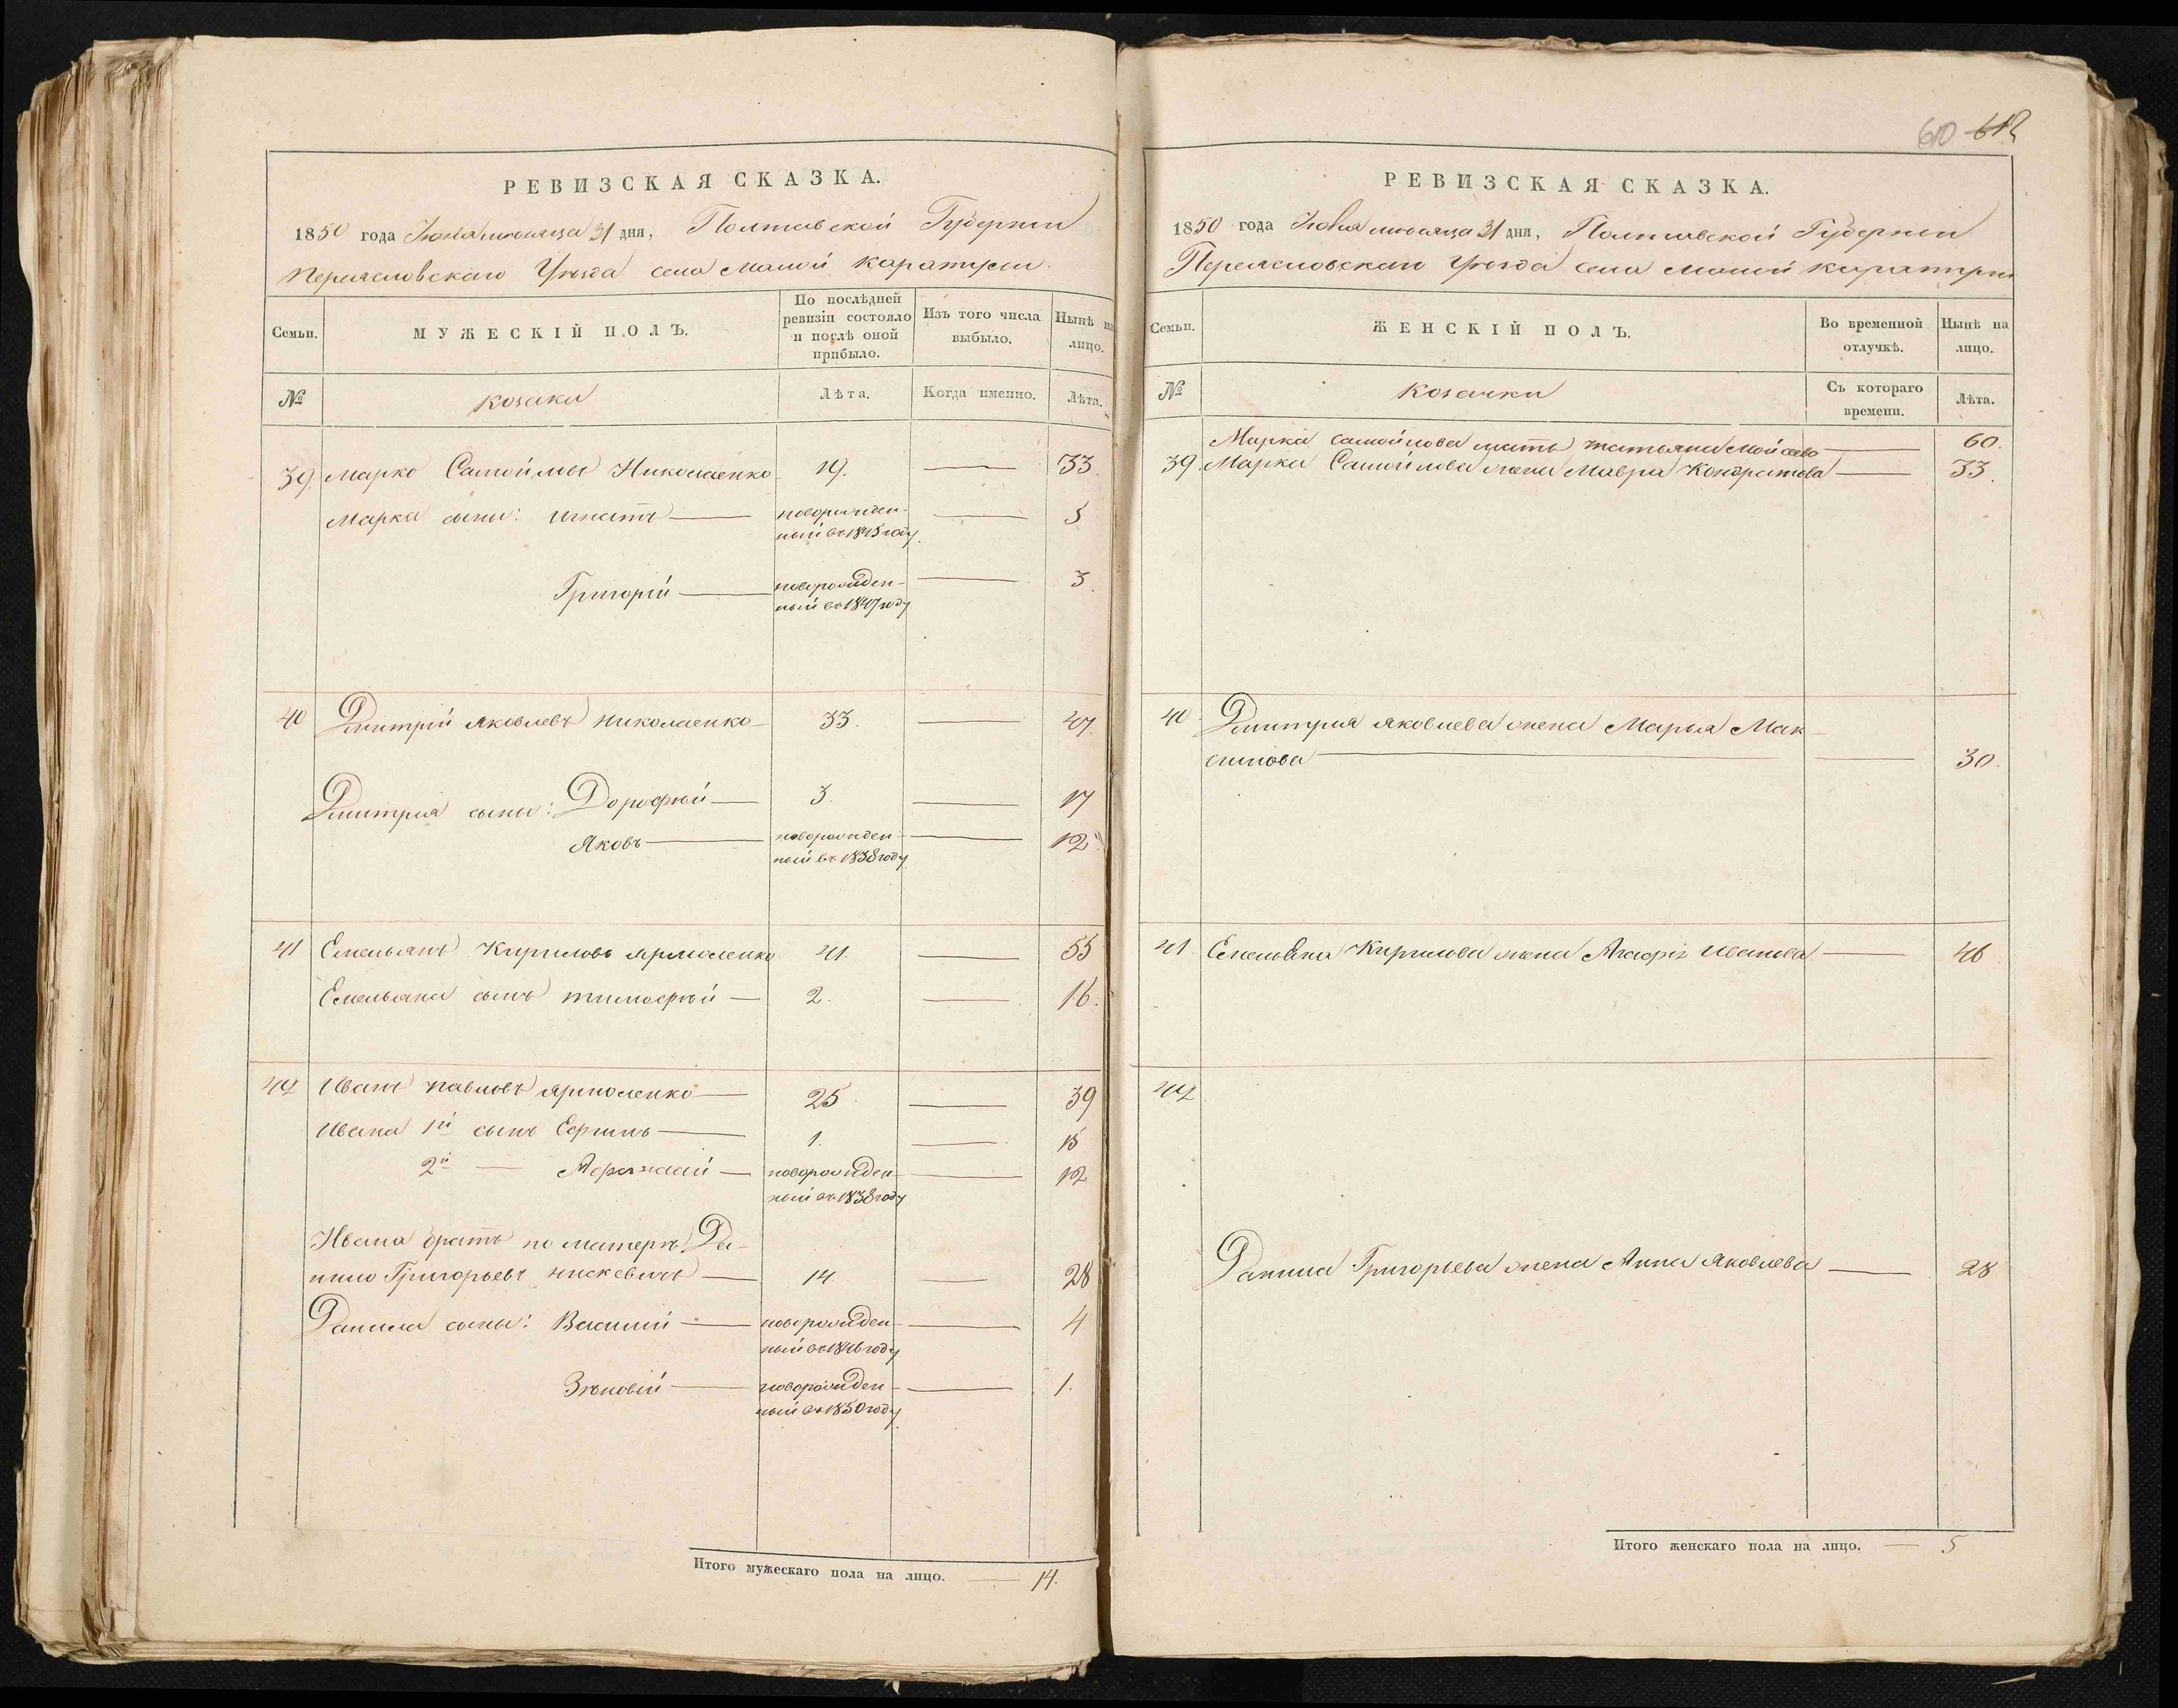 РЕВИЗСКАЯ СКАЗКА.
1850 года Июля месяца 31 дня, Полтавской Губернии
Переясловскаго Уѣзда села Малой Каратули
Семьи. МУЖЕСКІЙ ПОЛЪ. По послѣдней ревизіи состояло и послѣ оной прибыло. Изъ того числа выбыло. Нынѣ на лицо.
№ Козаки Лѣта. Когда именно. Лѣта.
39. Марко Самойловъ Николаенко 19. — 33.
Марка сыны: Игнатъ — новорожден-
ный въ 1845 году. — 5
Григорій — новорожден-
ный въ 1847 году — 3.
40 Дмитрій Яковлевъ Николаенко — 33. — 47.
Дмитрия сыны: Дорофѣй — 3. — 17
Яковъ — новорожден-
ный въ 1838 году — 12.
41 Емельянъ Кириловъ Ярмоленко 41. — 55
Емельяна сынъ Тимофѣй — 2. — 16.
42 Иванъ Павловъ Ярмоленко — 25. — 39
Ивана 1й сынъ Ефимъ — 1. — 15
2й — Афанасій — новорожден-
ный въ 1838 году — 12
Ивана братъ по матерѣ Да-
нило Григорьевъ — 14 — 28
Данила сыны: Василий — новорожден-
ный въ 1846 году — 4
Зѣновій — новорожден-
ный въ 1850 году — 1.
Итого мужескаго пола на лицо. — 14.
610 612
РЕВИЗСКАЯ СКАЗКА.
1850 года Июля месяца 31 дня, Полтавской Губернии
Переясловскаго Уѣзда села Малой Каратули
Семьи. ЖЕНСКІЙ ПОЛЪ. Во временной отлучкѣ. Нынѣ на лицо.
№ Козачки Съ котораго времени. Лѣта.
Марка Самойлова мать Татьяна Мойсева — 60.
39. Марка Самойлова жена Мавра Кондратова — 33.
40 Дмитрия Яковлева жена Марья Мак-
симова — 30.
41 Емельяна Кирилова жена Агафія Иванова — 46
42
Данила Григорьева жена Анна Яковлева — 28
Итого женскаго пола на лицо. — 5